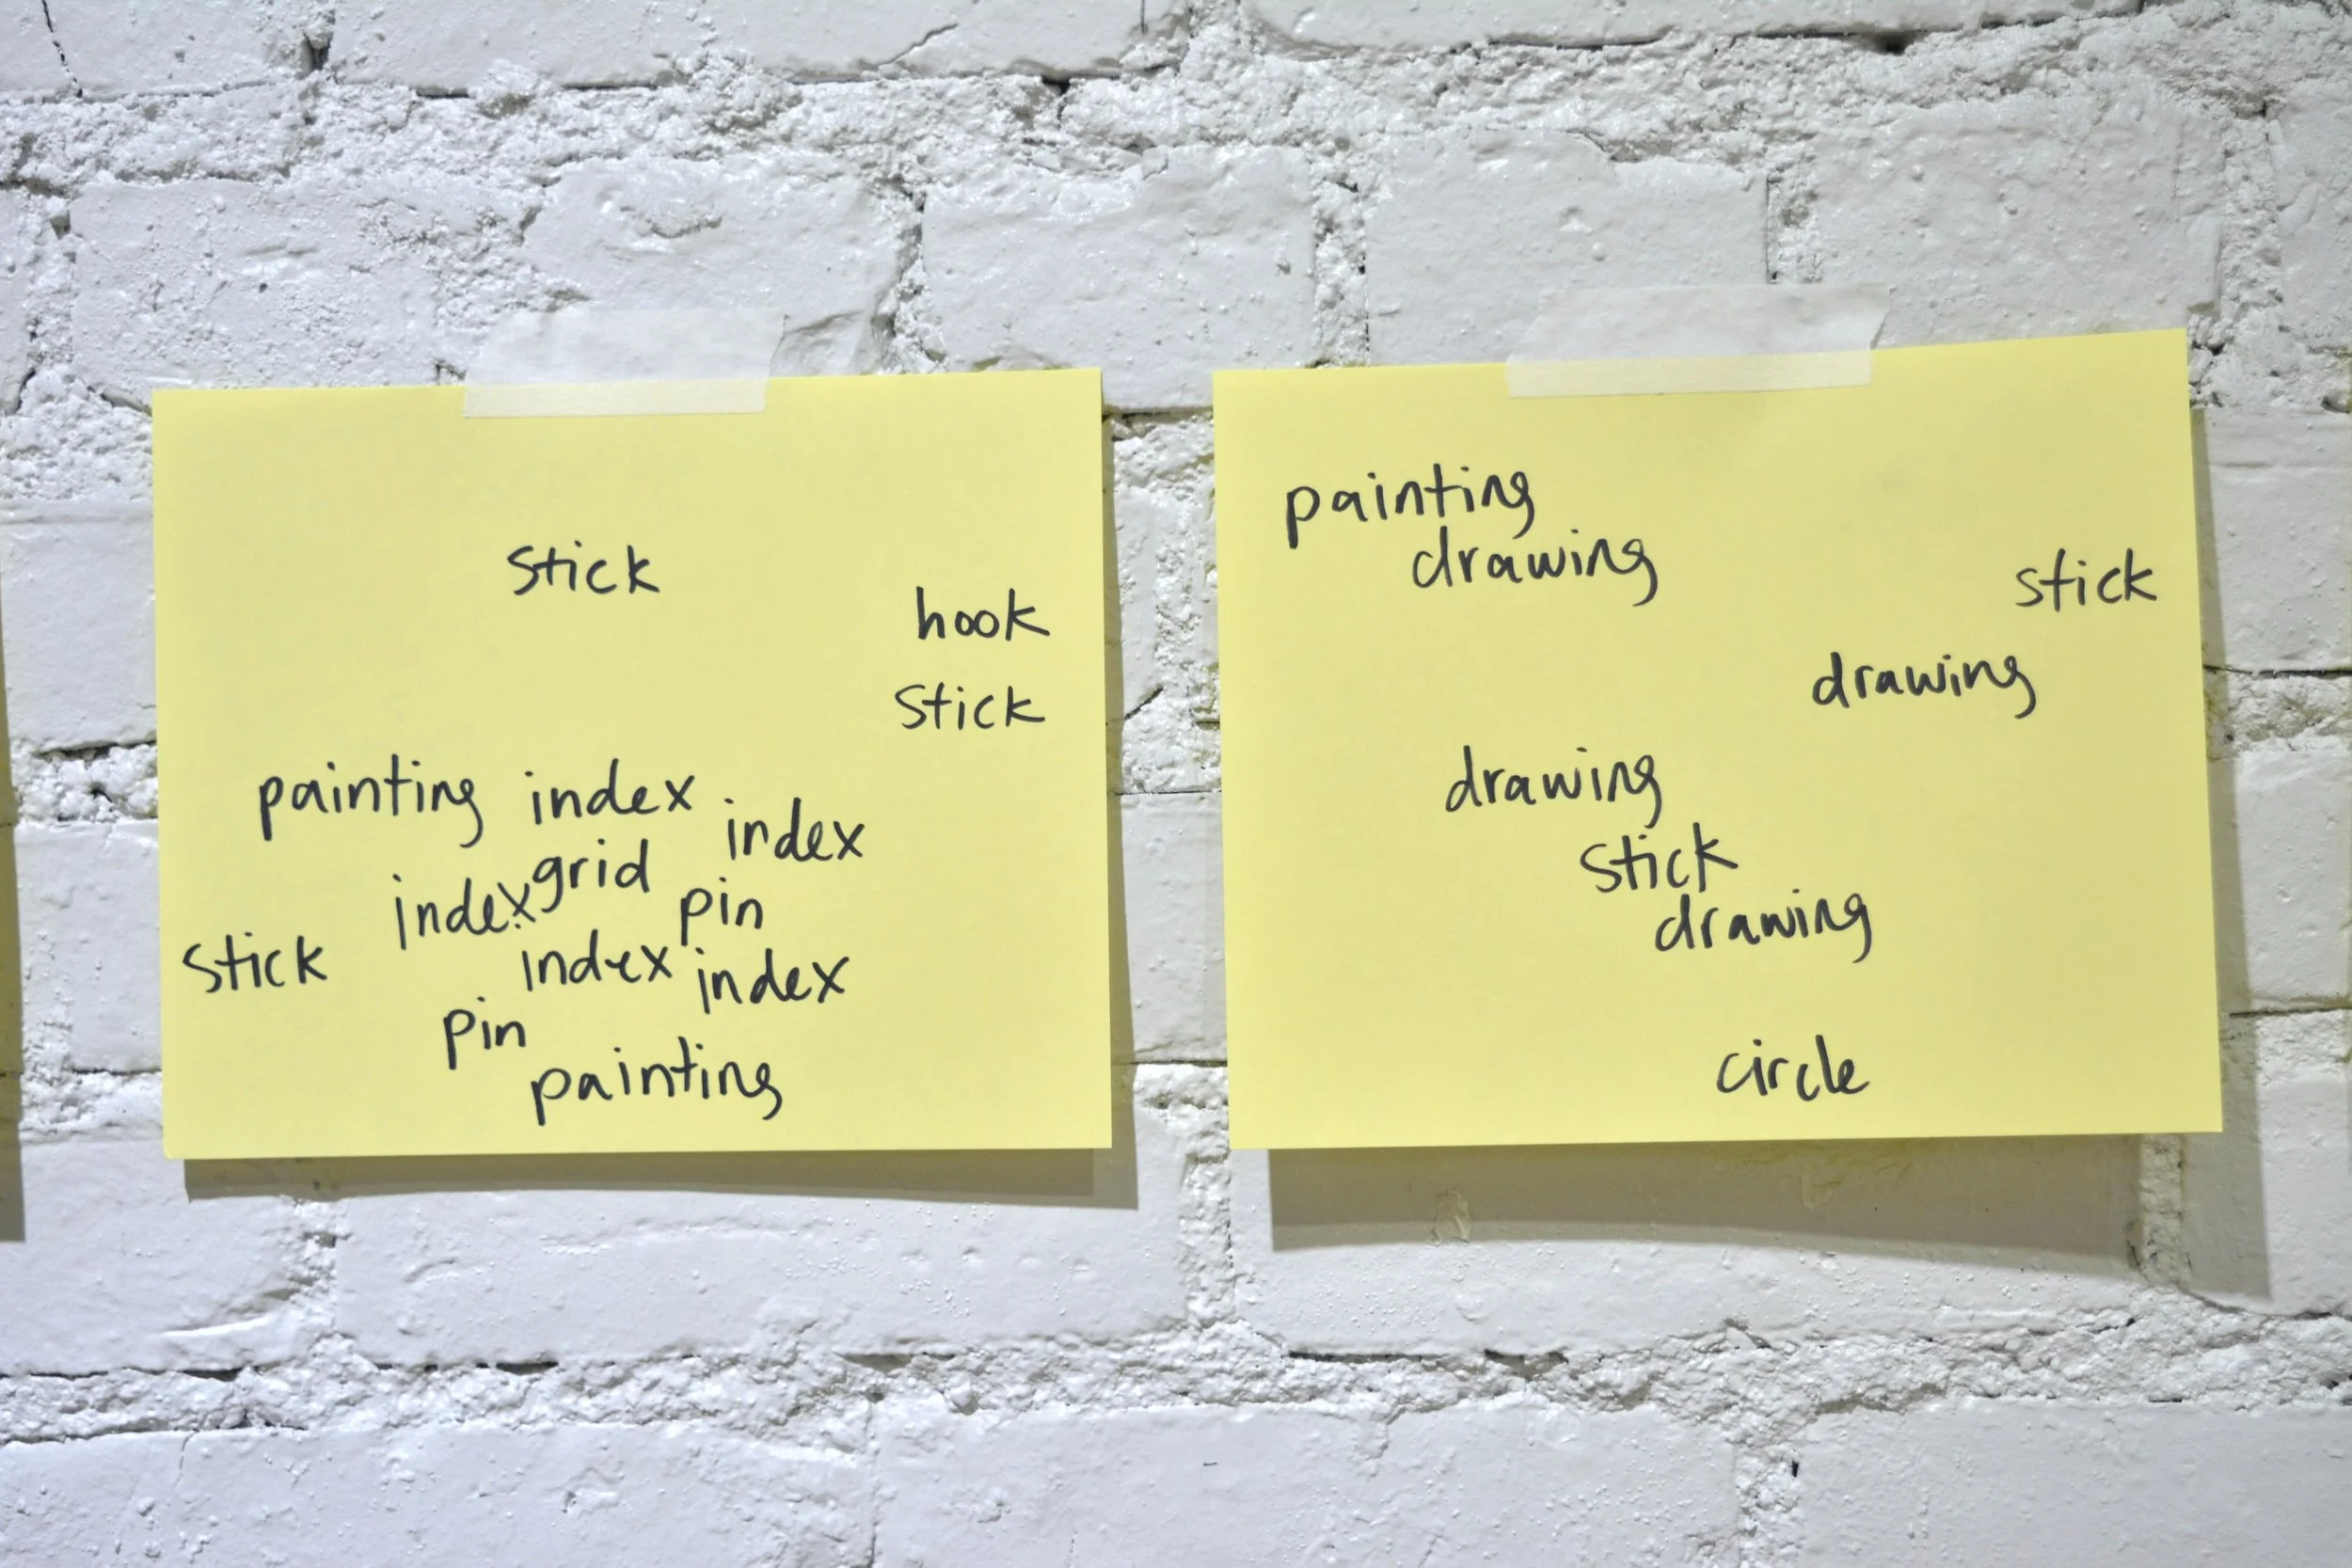 stick
hook
stick
painting index
index
grid
index
pin
stick
index
index
pin
painting
painting
drawing
stick
drawing
drawing
stick
drawing
circle